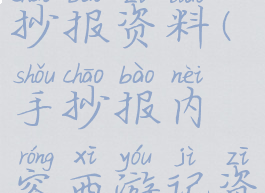 抄报资料(
shǒu chāo bào nèi
手抄报内
róng xī yóu jì zī
容西游记资